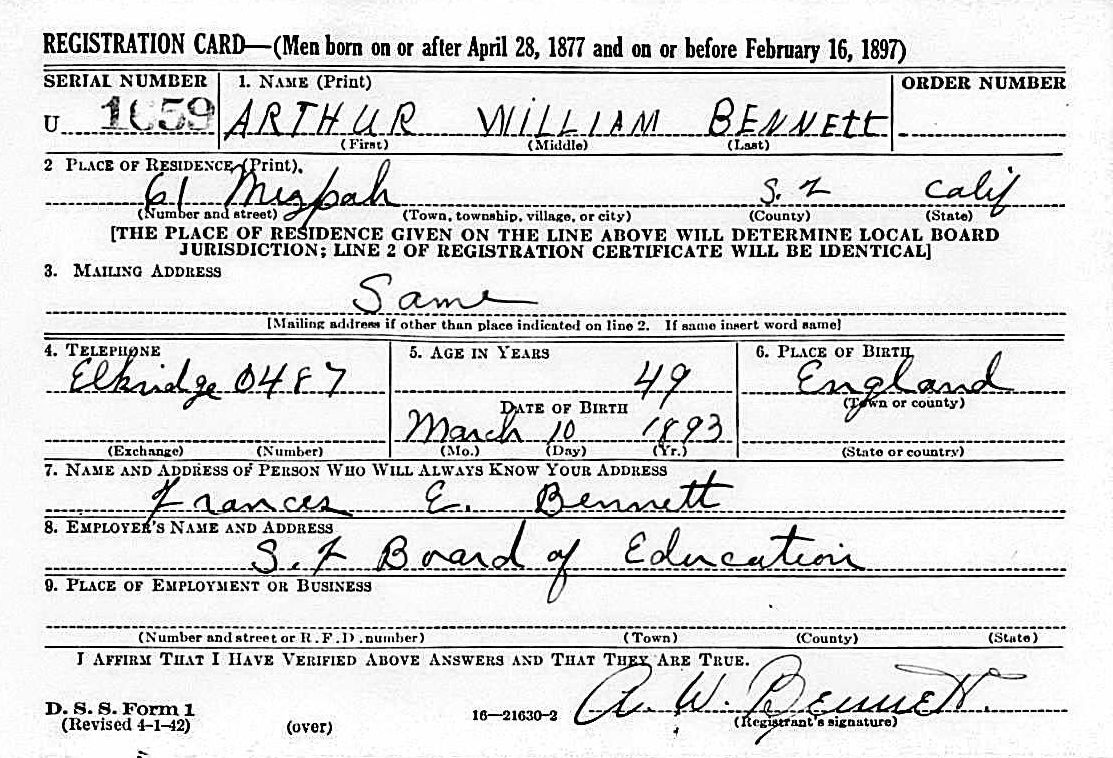 REGISTRATION CARD—(Men born on or after April 28, 1877 and on or before February 16, 1897)
SERIAL NUMBER 1. NAME (Print) ORDER NUMBER
U 1659 ARTHUR WILLIAM BENNETT
(First) (Middle) (Last)
2 PLACE OF RESIDENCE (Print).
61 Mizpah S. F Calif
(Number and street) (Town, township, village, or city) (County) (State)
[THE PLACE OF RESIDENCE GIVEN ON THE LINE ABOVE WILL DETERMINE LOCAL BOARD
JURISDICTION; LINE 2 OF REGISTRATION CERTIFICATE WILL BE IDENTICAL]
3. MAILING ADDRESS
Same
[Mailing address if other than place indicated on line 2. If same insert word same]
4. TELEPHONE 5. AGE IN YEARS 6. PLACE OF BIRTH
Elkridge 0487 49 England
DATE OF BIRTH (Town or county)
March 10 1893
(Exchange) (Number) (Mo.) (Day) (Yr.) (State or country)
7. NAME AND ADDRESS OF PERSON WHO WILL ALWAYS KNOW YOUR ADDRESS
Frances E. Bennett
8. EMPLOYER'S NAME AND ADDRESS
S. F Board of Education
9. PLACE OF EMPLOYMENT OR BUSINESS
(Number and street or R. F. D. number) (Town) (County) (State)
I AFFIRM THAT I HAVE VERIFIED ABOVE ANSWERS AND THAT THEY ARE TRUE.
A. W. Bennett.
D. S. S. Form 1
(Revised 4-1-42) (over) 16—21630-2 (Registrant's signature)